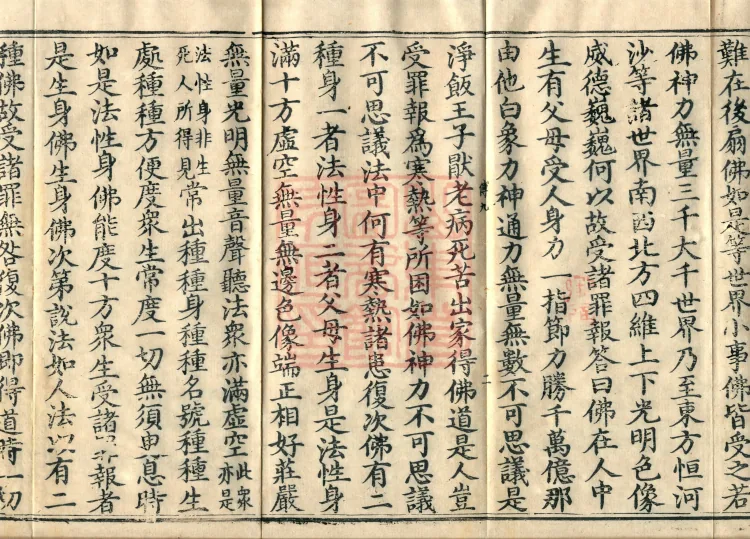 難在後扇佛如是等世界小事佛皆受之若
佛神力無量三千大千世界乃至東方恒河
沙等諸世界南西北方四維上下光明色像
威德巍巍何以故受諸罪報答曰佛在人中
生有父母受人身力一指節力勝千萬億那
由他白象力神通力無量無數不可思議是
二
淨飯王子猒老病死苦出家得佛道是人豈
受罪報爲寒熱等所困如佛神力不可思議
不可思議法中何有寒熱諸患復次佛有二
種身一者法性身二者父母生身是法性身
滿十方虛空無量無邊色像端正相好莊嚴
無量光明無量音聲聽法衆亦滿虛空此衆亦是
法性身非生死人所得見常出種種身種種名號種種生
處種種方便度衆生常度一切無須臾息時
如是法性身佛能度十方衆生受諸罪報者
是生身佛生身佛次第說法如人法以有二
種佛故受諸罪無咎復次佛即得道時一切